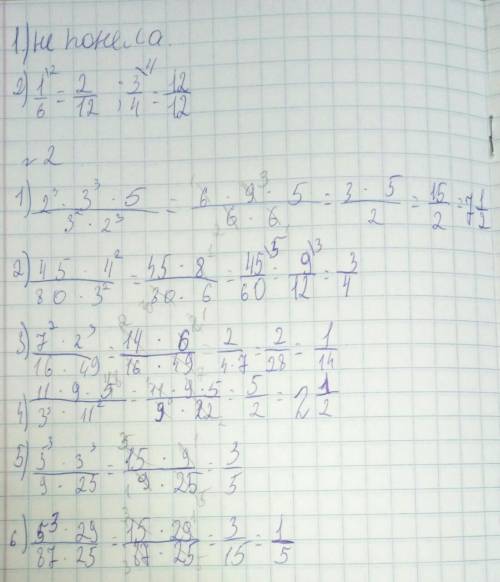 1.) не понела.
2) 1/6 \2 = 2/12 ; 3/4 \4 = 12/12
№ 2
1) (2³ · 3³ · 5)/(3² · 2³) = (6 · 9³ · 5)/(6 · 6) = (3 · 5)/2 = 15/2 = 7 1/2
2) (45 · 4²)/(80 · 3²) = (45 · 8)/(80 · 6) = 45/60 \5 = 9/12 \3 = 3/4
3) (7² · 2³)/(16 · 49) = (14 · 6)/(16 · 49) = 2/(4 · 7) = 2/28 = 1/14
4) (11 · 9 · 5)/(3² · 11²) = (11 · 9 · 5)/(9 · 22) = 5/2 = 2 1/2
5) (5³ · 3³)/(9 · 25) = (15 · 9)/(9 · 25) = 3/5
6) (5³ · 29)/(87 · 25) = (15 · 29)/(87 · 25) = 3/15 = 1/5